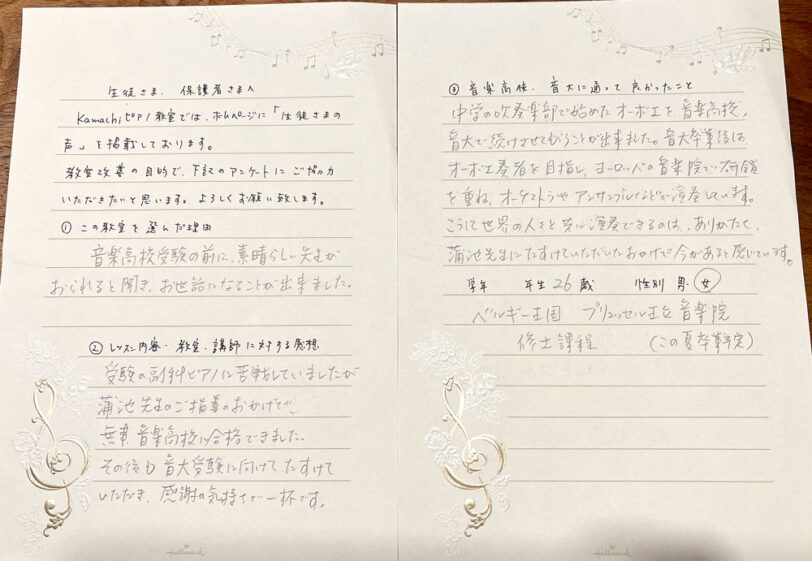 生徒さま、保護者さまへ
Kamachiピアノ教室では、ホームページに「生徒さまの
声」を掲載しております。
教室改善の目的で、下記のアンケートにご協力
いただきたいと思います。よろしくお願い致します。
① この教室を選んだ理由
音楽高校受験の前に、素晴らしい先生が
おられると聞き、お世話になることが出来ました。
② レッスン内容・教室、講師に対する感想
受験の副科ピアノに苦戦していましたが
蒲池先生のご指導のおかげで、
無事音楽高校に合格できました。
その後も音大受験に向けてたすけて
いただき、感謝の気持ちで一杯です。
Hallmark
④ 音楽高校、音大に通って良かったこと
中学の吹奏楽部で始めたオーボエを音楽高校、
音大で続けさせてもらうことが出来ました。音大卒業後は
オーボエ奏者を目指し、ヨーロッパの音楽院で研鑽
を重ね、オーケストラやアンサンブルなどで演奏しています。
こうして世界の人々と共に演奏できるのは、ありがたく、
蒲池先生にたすけていただいたおかげで今があると感じています。
学年 年生 26歳 性別 男・女
ベルギー王国 ブリュッセル王立音楽院
修士課程 (この夏卒業予定)
Hallmark